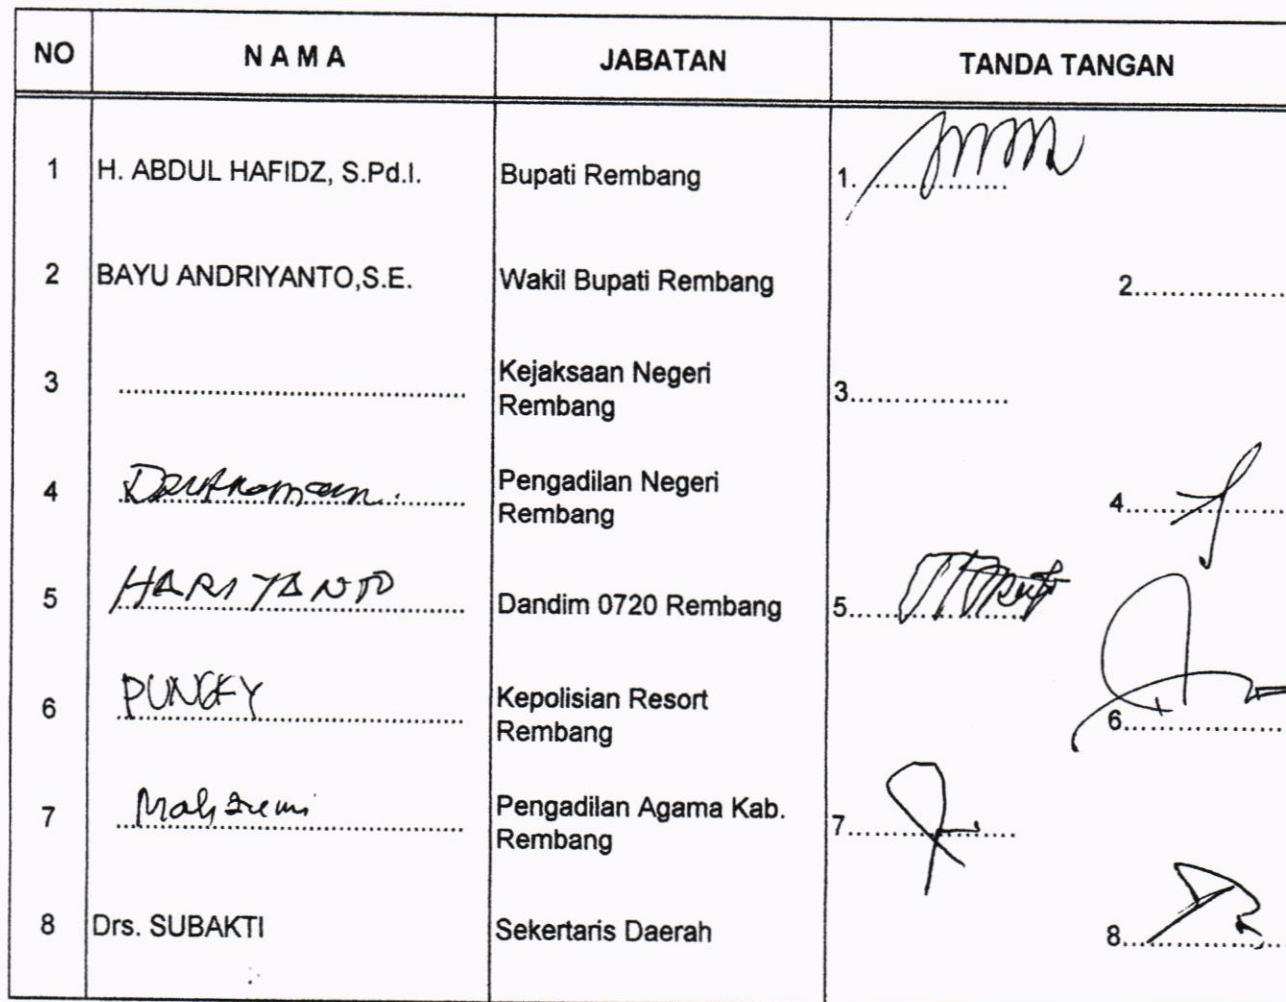 NO NAMA JABATAN TANDA TANGAN
1 H. ABDUL HAFIDZ, S.Pd.I. Bupati Rembang 1.................
2 BAYU ANDRIYANTO,S.E. Wakil Bupati Rembang 2.................
3 ................................ Kejaksaan Negeri
Rembang 3.................
4 Pengadilan Negeri
Rembang 4.................
5 HARIYANTO Dandim 0720 Rembang 5.................
6 PUNGKY Kepolisian Resort
Rembang 6.................
7 Pengadilan Agama Kab.
Rembang 7.................
8 Drs. SUBAKTI Sekertaris Daerah 8.................